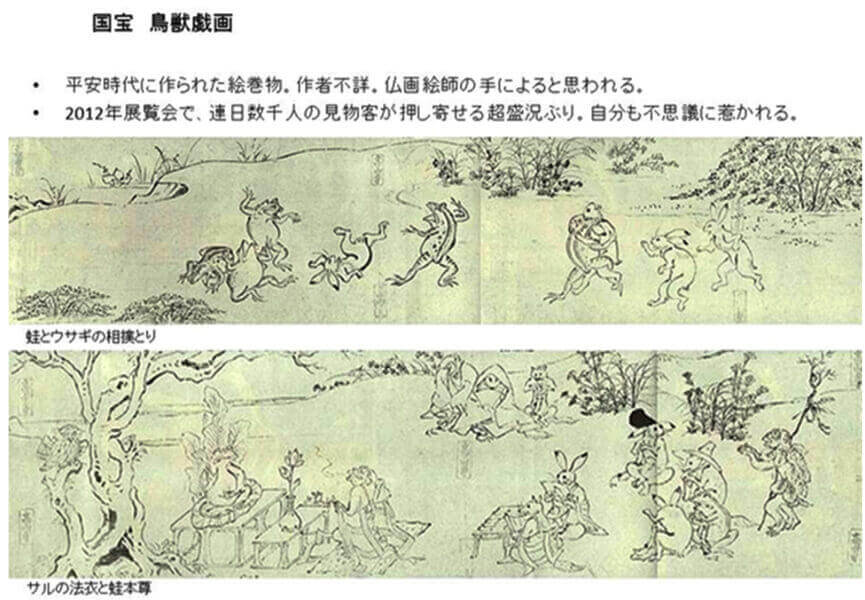 国宝　鳥獣戯画
• 平安時代に作られた絵巻物。作者不詳。仏画絵師の手によると思われる。
• 2012年展覧会で、連日数千人の見物客が押し寄せる超盛況ぶり。自分も不思議に惹かれる。
蛙とウサギの相撲とり
サルの法衣と蛙本尊